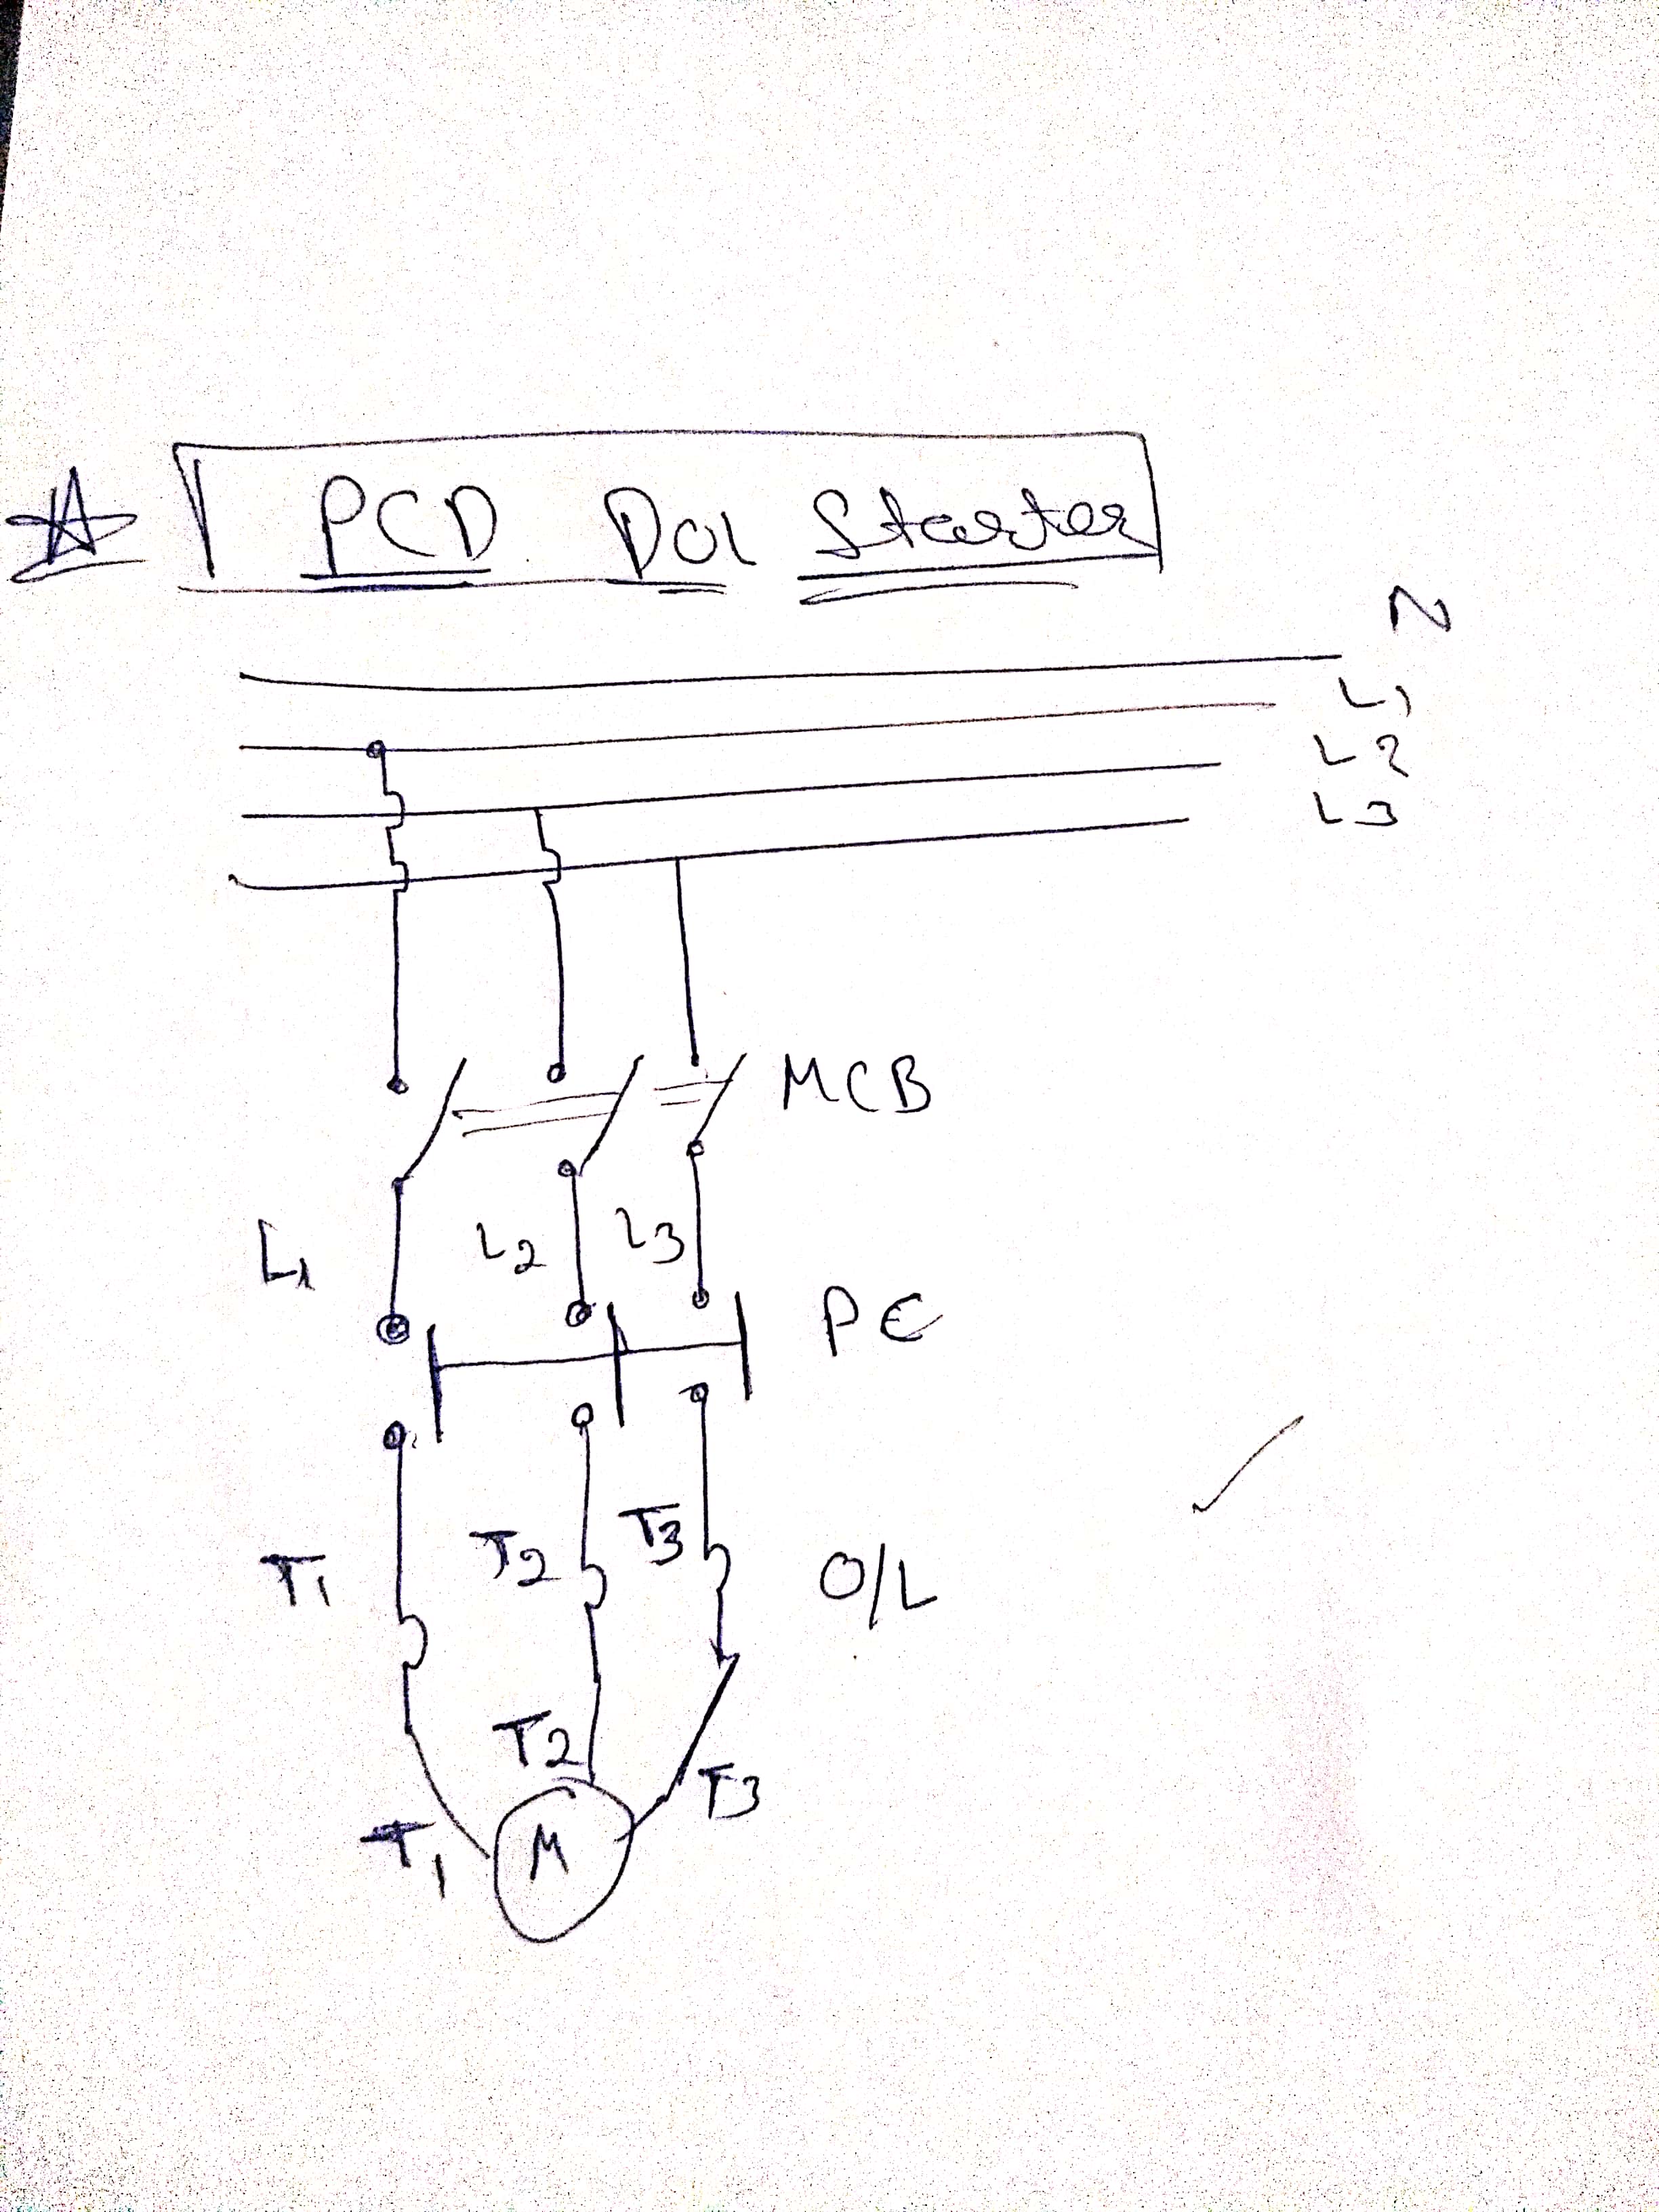 PCD DOL Starter
N
L1
L2
L3
MCB
L1 L2 L3
PC
T1 T2 T3 O/L
T2
T3
T1
M